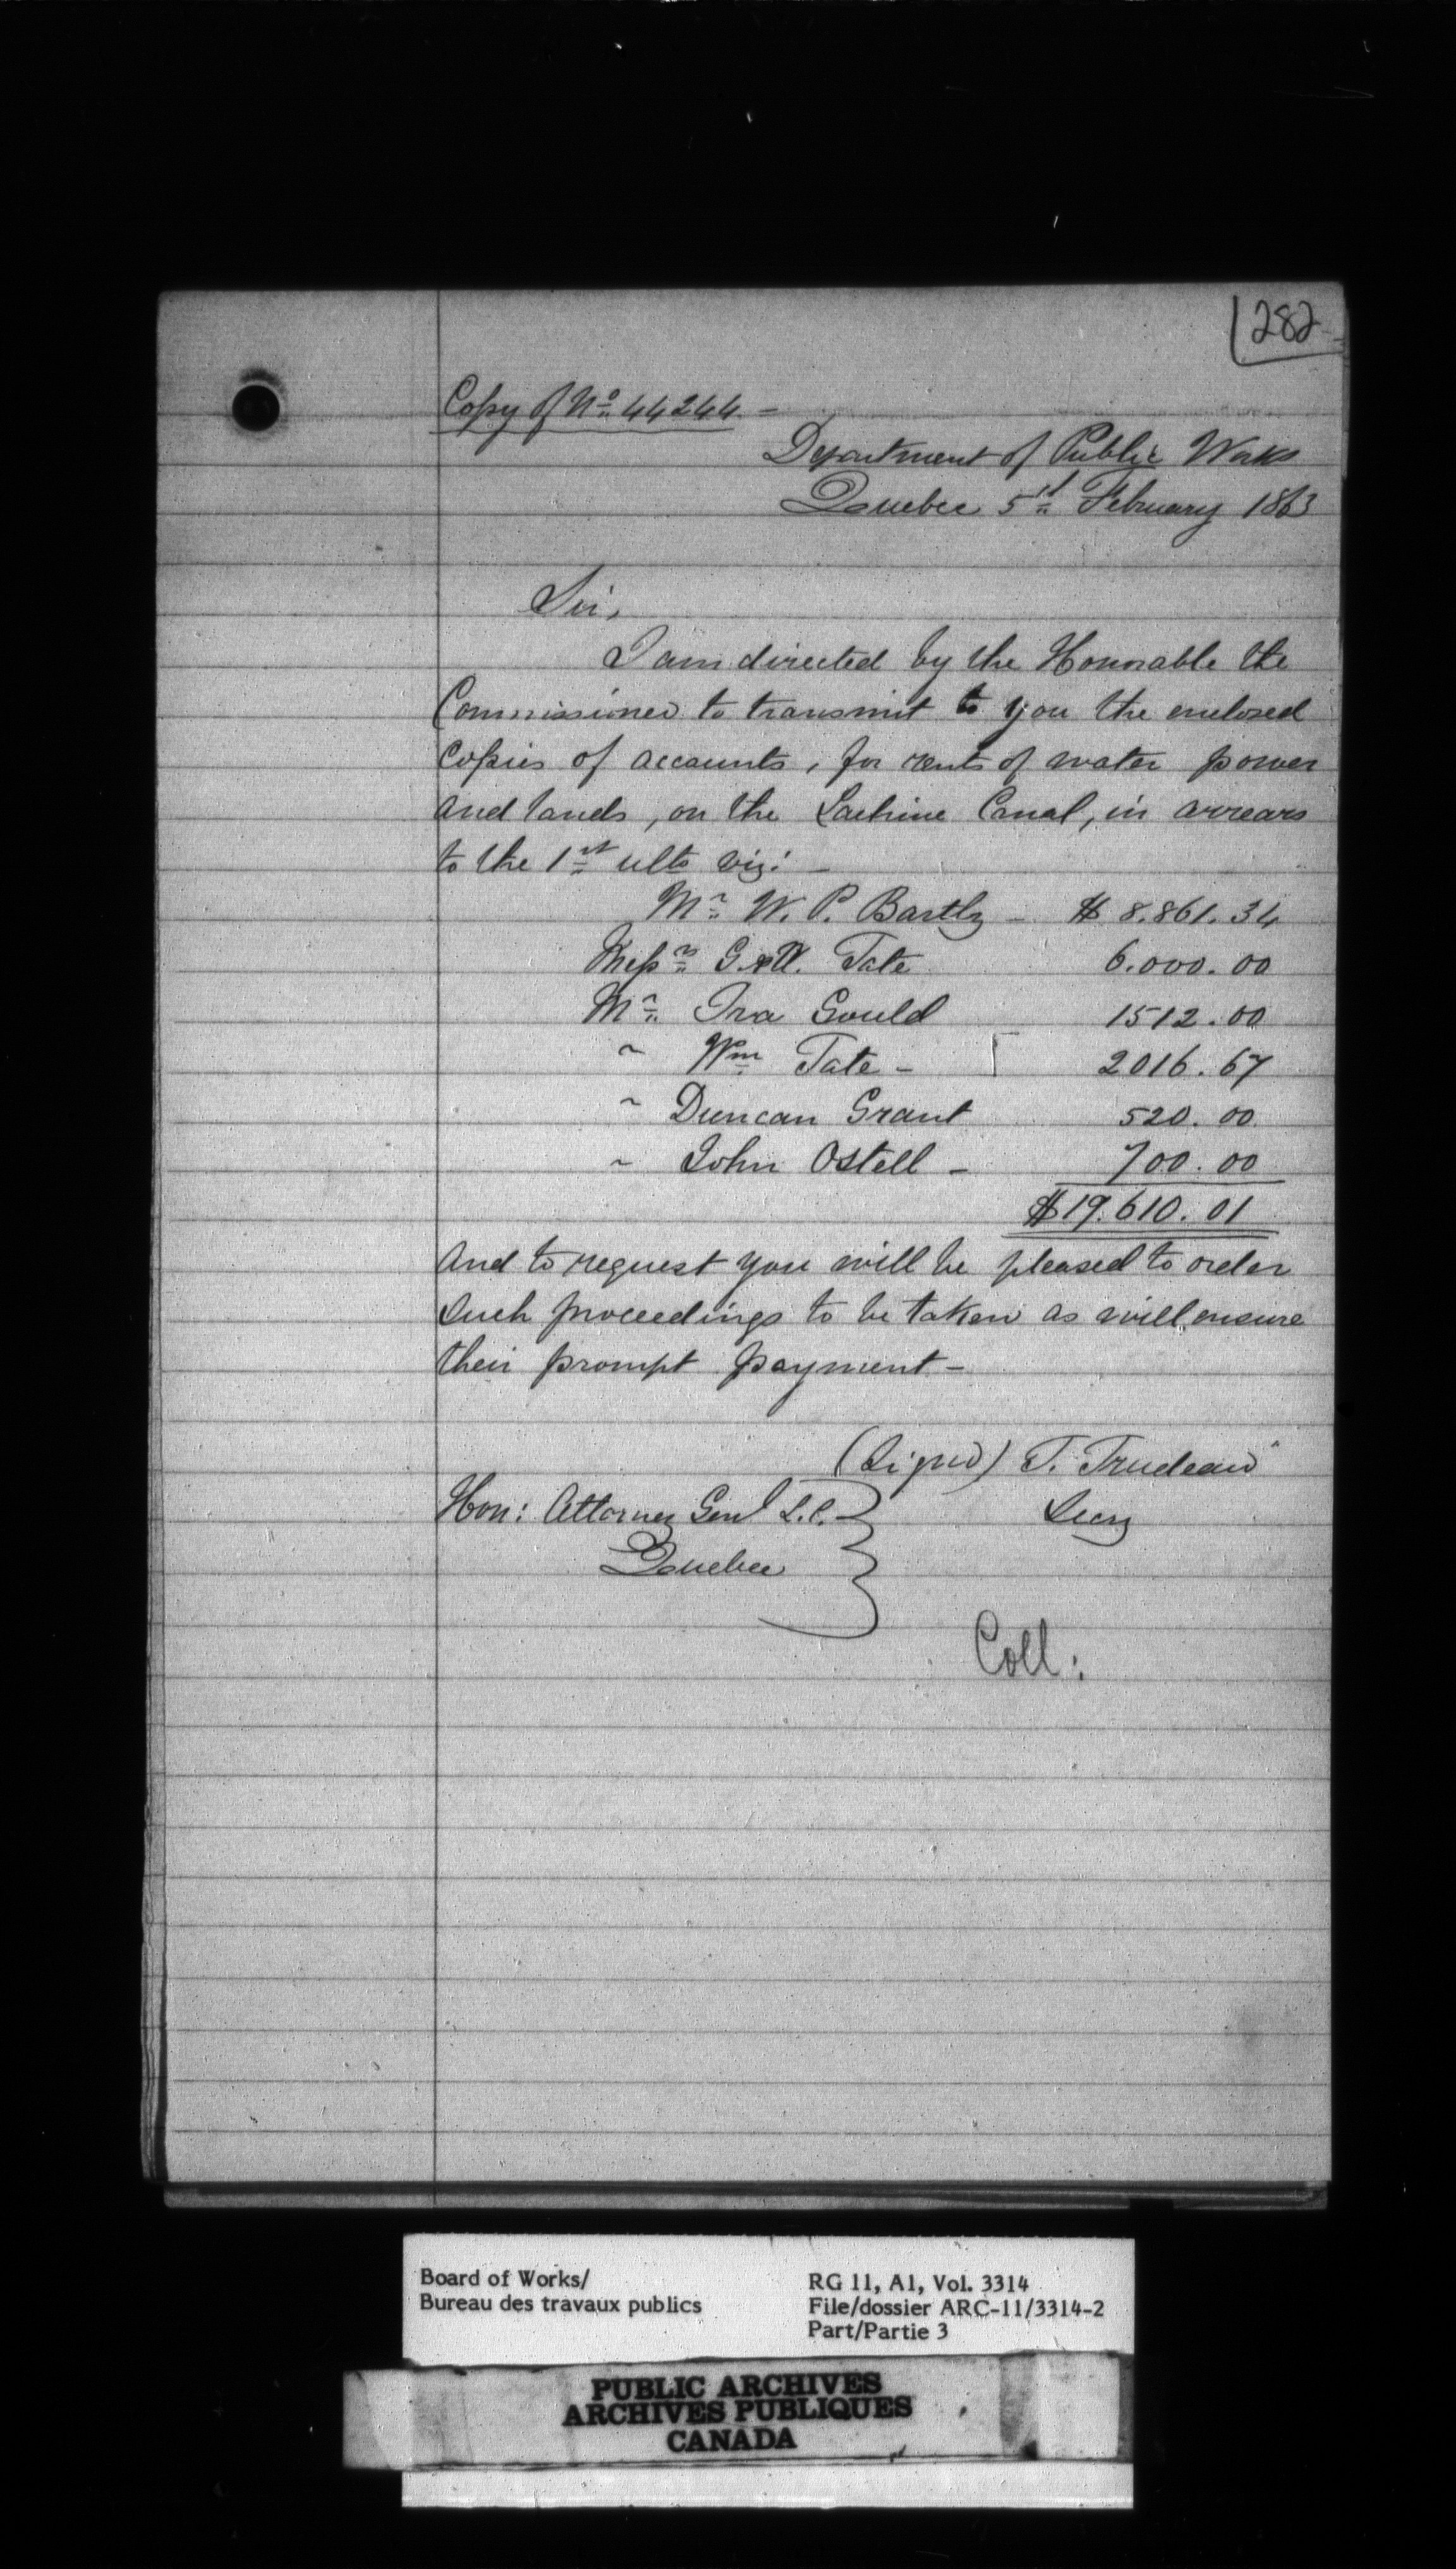 282
Copy of No. 44244 -
Department of Public Works
Quebec 5th February 1863
Sir,
I am directed by the Honorable the
Commissioner to transmit to you the enclosed
copies of accounts, for rents of water power
and lands, on the Lachine Canal, in arrears
to the 1st ulto viz: -
Mr. W. P. Bartly - $ 8.861.34
Messrs. G & W. Tate 6.000.00
Mr. Ira Gould 1512.00
" Wm. Tate - 2016.67
" Duncan Grant 520.00
" John Ostell - 700.00
$19.610.01
And to request you will be pleased to order
such proceedings to be taken as will ensure
their prompt payment -
(Signed) T. Trudeau
Hon: Attorney Genl L.C. Secy
Quebec
Coll:
Board of Works/
Bureau des travaux publics
RG 11, A1, Vol. 3314
File/dossier ARC-11/3314-2
Part/Partie 3
PUBLIC ARCHIVES
ARCHIVES PUBLIQUES
CANADA